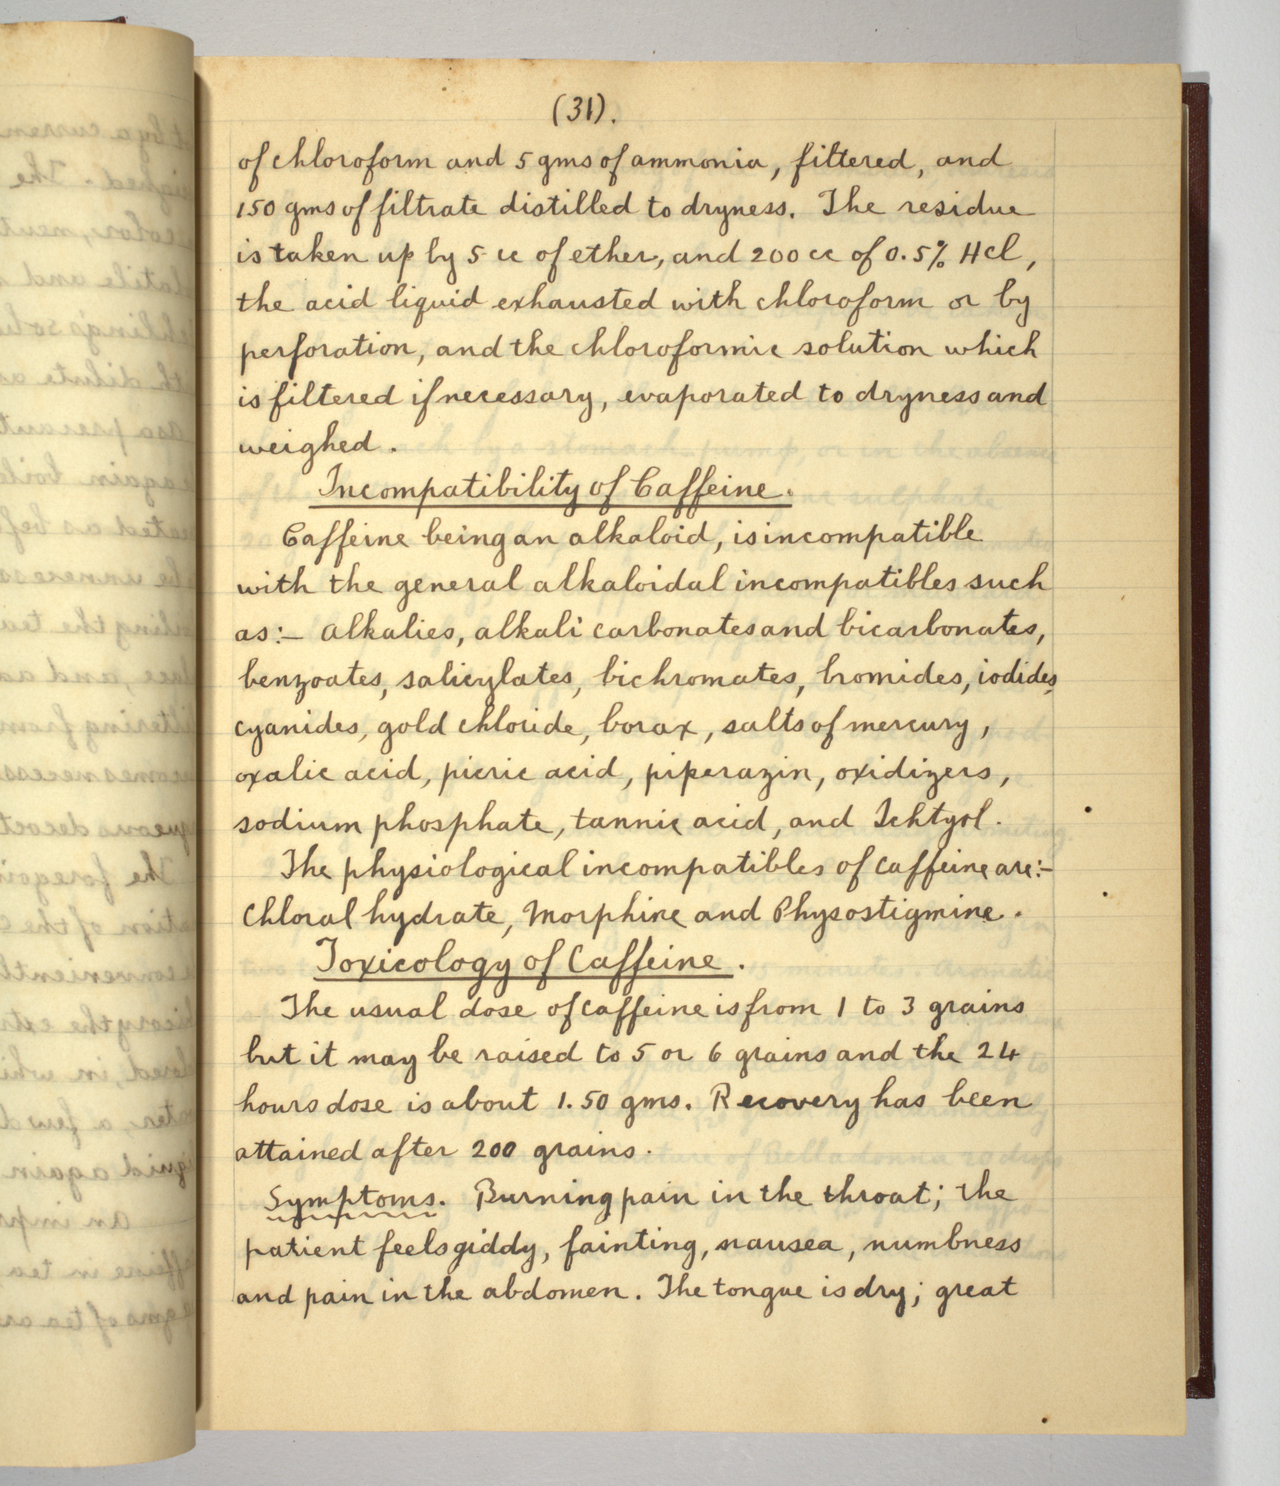 (31).
of chloroform and 5 gms of ammonia, filtered, and
150 gms of filtrate distilled to dryness. The residue
is taken up by 5 cc of ether, and 200 cc of 0.5% HCl,
the acid liquid exhausted with chloroform or by
perforation, and the chloroformic solution which
is filtered if necessary, evaporated to dryness and
weighed.
Incompatibility of Caffeine.
Caffeine being an alkaloid, is incompatible
with the general alkaloidal incompatibles such
as:- alkalies, alkali carbonates and bicarbonates,
benzoates, salicylates, bichromates, bromides, iodides,
cyanides, gold chloride, borax, salts of mercury,
oxalic acid, picric acid, piperazin, oxidizers,
sodium phosphate, tannic acid, and Ichtyol.
The physiological incompatibles of caffeine are:-
Chloral hydrate, Morphine and Physostigmine.
Toxicology of Caffeine.
The usual dose of caffeine is from 1 to 3 grains
but it may be raised to 5 or 6 grains and the 24
hours dose is about 1.50 gms. Recovery has been
attained after 200 grains.
Symptoms. Burning pain in the throat; the
patient feels giddy, fainting, nausea, numbness
and pain in the abdomen. The tongue is dry; great